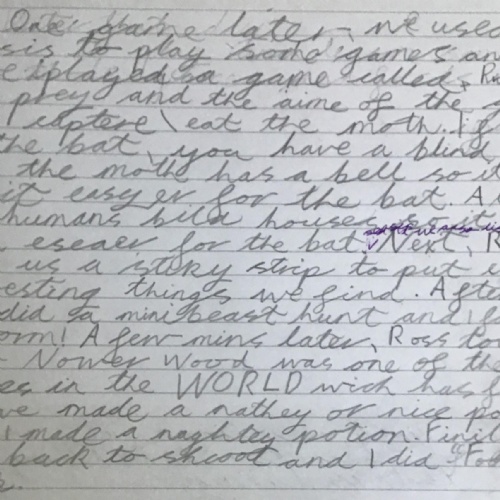 One game later, we used
sis to play some games an
e played a game called, Pr
prey and the aime of the
capture \ eat the moth. If
the bat, you have a blind
the moth has a bell so it
it easyer for the bat. A
humans bild houses so it
eseaer for the bat. Next, R
us a stiky strip to put
esting things we find. Afte
did a mini beast hunt and I f
orm! A few mins later, Ross to
- Nower Wood was one of the
es in the WORLD wich has
we made a nathey or nice po
I made a naghtey potion. Finil
back to shcool and I did Foo